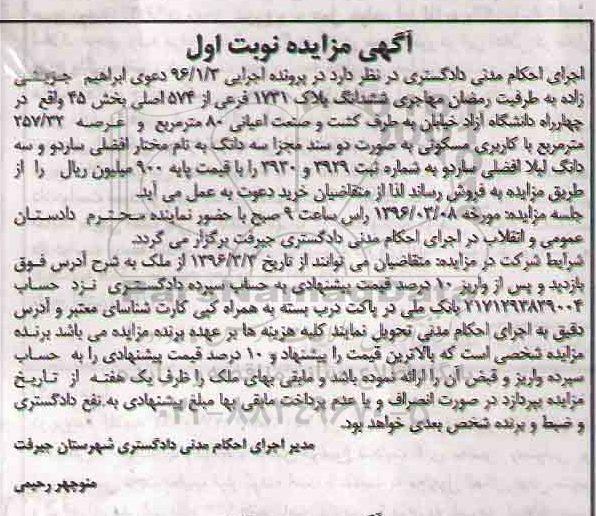 آگهی مزایده نوبت اول
اجرای احکام مدنی دادگستری در نظر دارد در پرونده اجرایی ۹۶/۱/۳ دعوی ابراهیم
زاده به طرفیت رمضان مهاجری ششدانگ پلاک ۱۷۳۱ فرعی از ۵۷۴ اصلی بخش ۴۵ واقع در
چهارراه دانشگاه آزاد خیابان به طرف کشت و صنعت اعیانی ۸۰ مترمربع و عرصه ۲۵۷/۳۲
مترمربع با کاربری مسکونی به صورت دو سند مجزا سه دانگ به نام مختار افضلی ساردو و سه
دانگ لیلا افضلی ساردو به شماره ثبت ۳۹۲۹ و ۳۹۳۰ را با قیمت پایه ۹۰۰ میلیون ریال را از
طریق مزایده به فروش رساند لذا از متقاضیان خرید دعوت به عمل می آید.
جلسه مزایده: مورخه ۱۳۹۶/۰۳/۰۸ راس ساعت ۹ صبح با حضور نماینده محترم دادستان
عمومی و انقلاب در اجرای احکام مدنی دادگستری جیرفت برگزار می گردد.
شرایط شرکت در مزایده: متقاضیان می توانند از تاریخ ۱۳۹۶/۳/۳ از ملک به شرح آدرس فوق
بازدید و پس از واریز ۱۰ درصد قیمت پیشنهادی به حساب سپرده دادگستری نزد حساب
۲۱۷۱۲۹۳۸۳۹۰۰۴ بانک ملی در پاکت درب بسته به همراه کپی کارت شناسای معتبر و آدرس
دقیق به اجرای احکام مدنی تحویل نمایند کلیه هزینه ها بر عهده برنده مزایده می باشد برنده
مزایده شخصی است که بالاترین قیمت را پیشنهاد و ۱۰ درصد قیمت پیشنهادی را به حساب
سپرده واریز و قبض آن را ارائه نموده باشد و مابقی بهای ملک را ظرف یک هفته از تاریخ
مزایده بپردازد در صورت انصراف و یا عدم پرداخت مابقی بها مبلغ پیشنهادی به نفع دادگستری
و ضبط و برنده شخص بعدی خواهد بود.
مدیر اجرای احکام مدنی دادگستری شهرستان جیرفت
منوچهر رحیمی